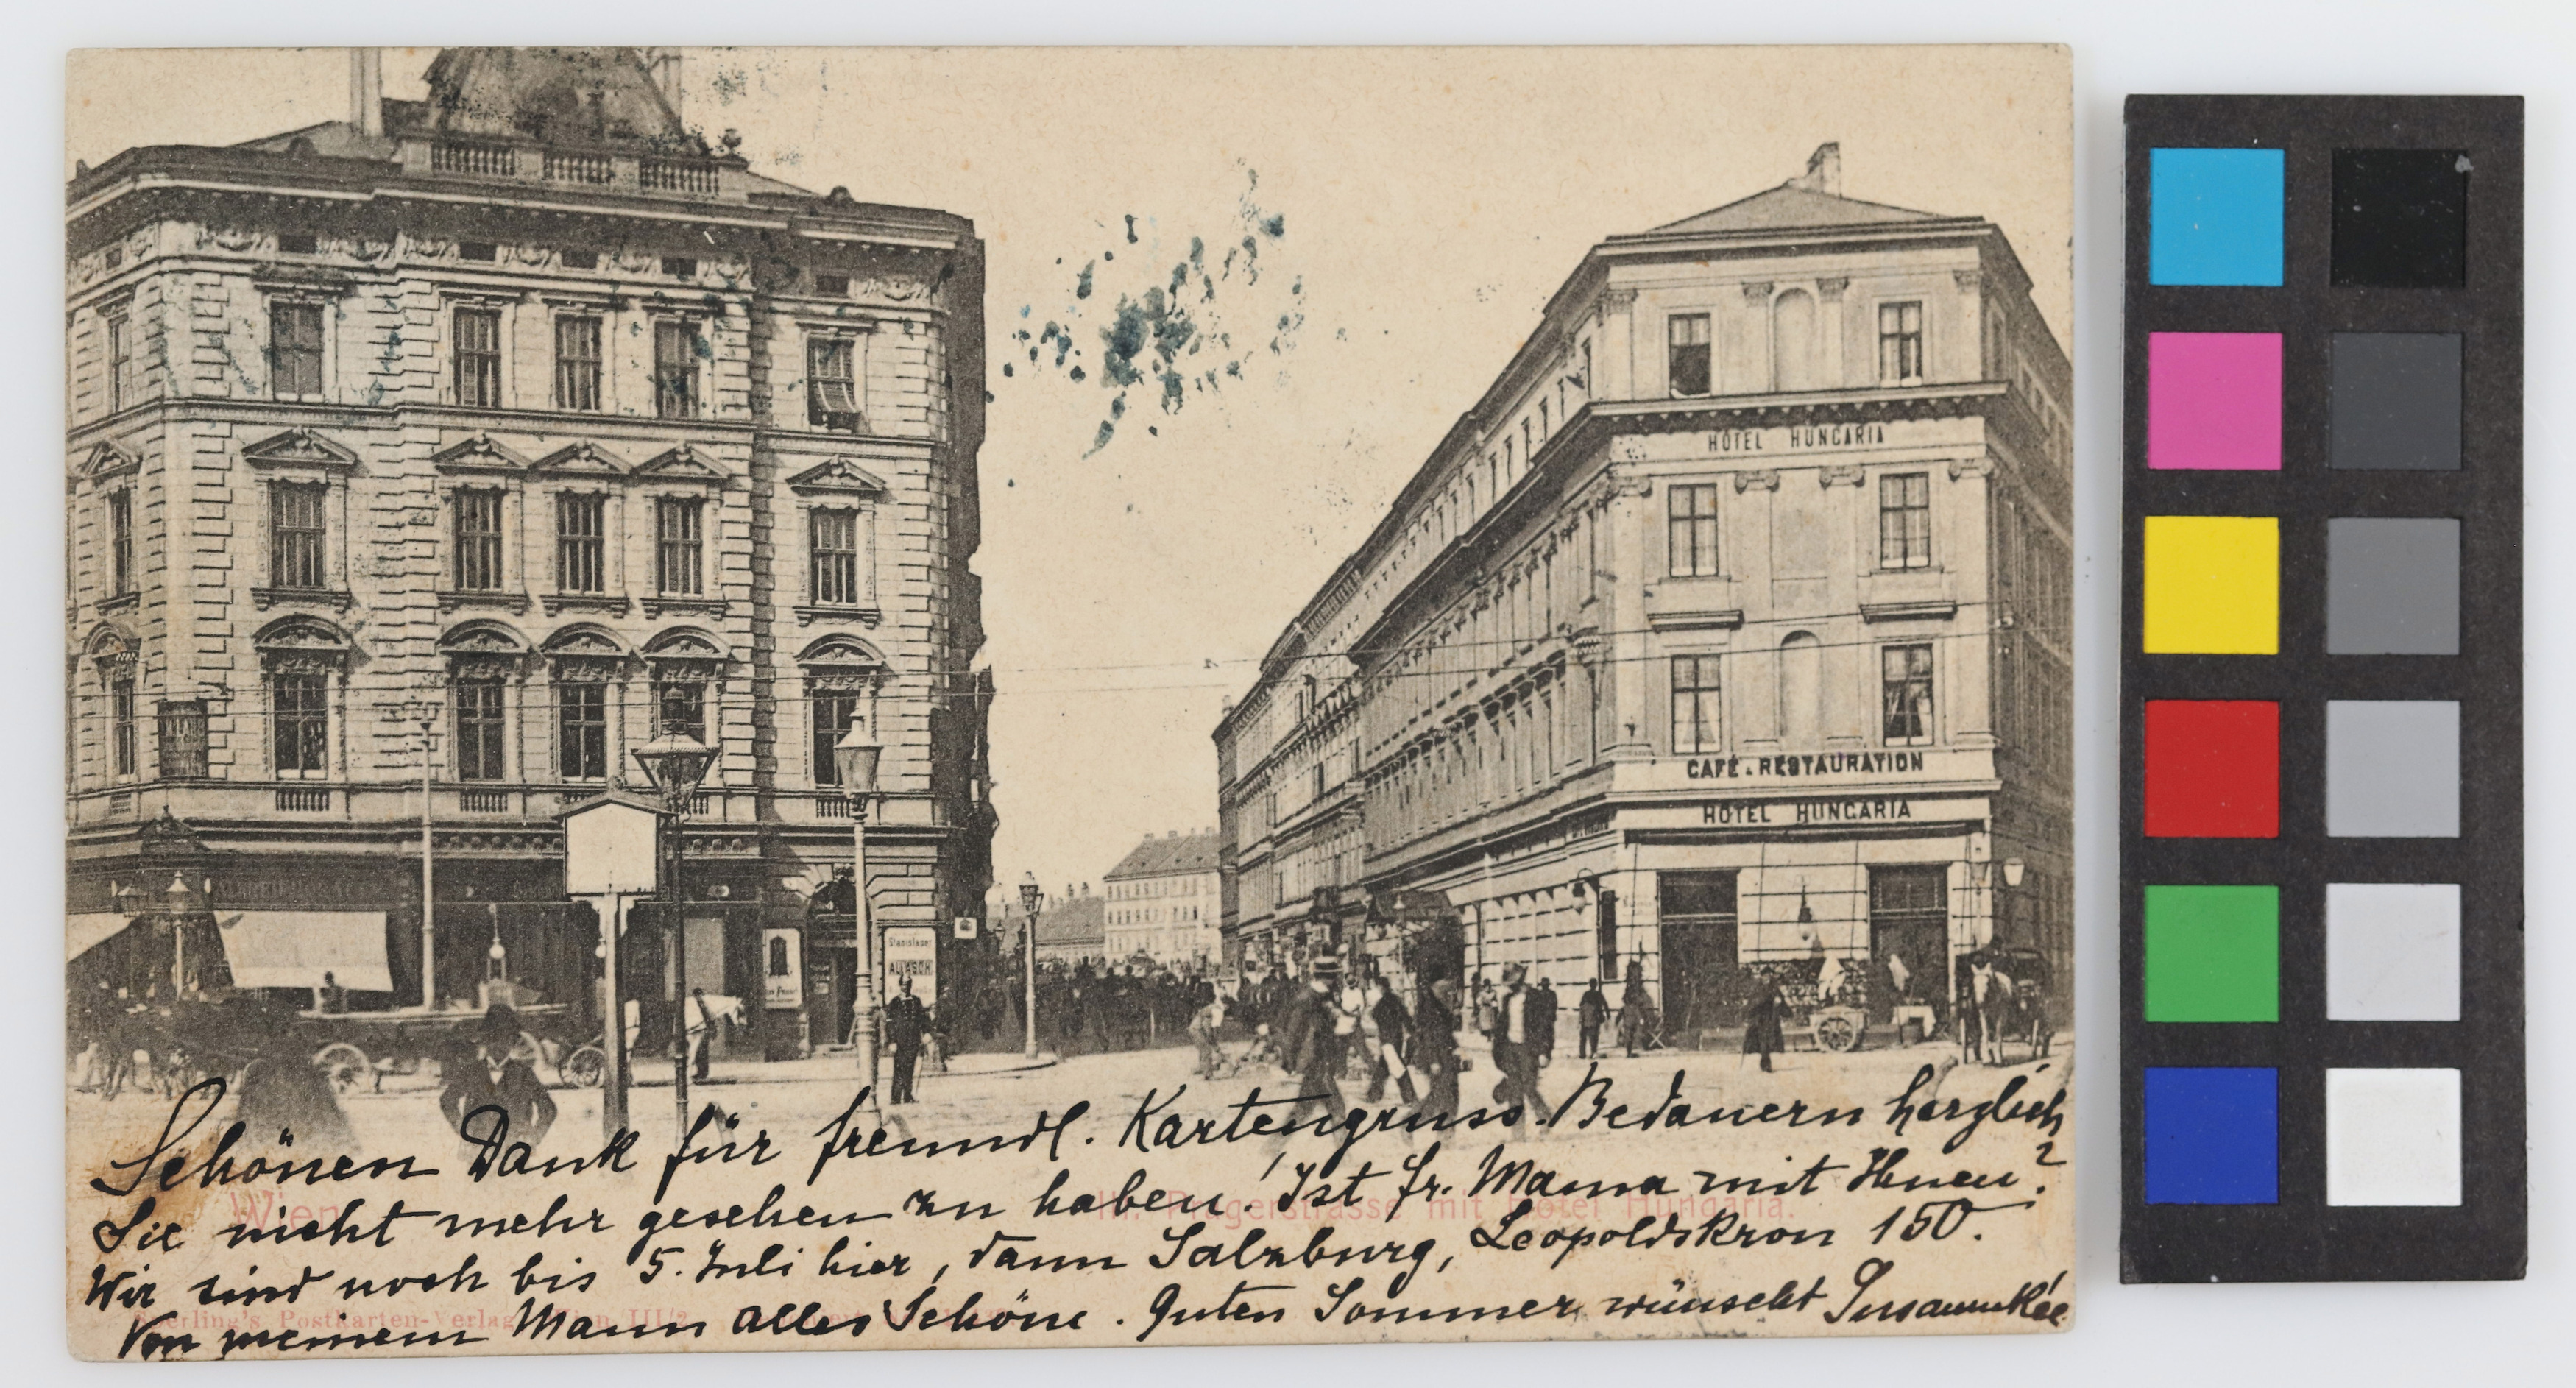 HÔTEL HUNGARIA
CAFÉ. RESTAURATION
HÔTEL HUNGARIA
Schönen Dank für freundl. Kartengruss. Bedauern herzlich
Sie nicht mehr gesehen zu haben! Ist Fr. Mama mit Ihnen?
Wir sind noch bis 5. Juli hier, dann Salzburg, Leopoldskron 150.
Von meinem Mann alles Schöne. Guten Sommer wünscht
Wien
III. Pragerstrasse mit Hôtel Hungaria.
Sperling's Postkarten-Verlag, Wien III/2